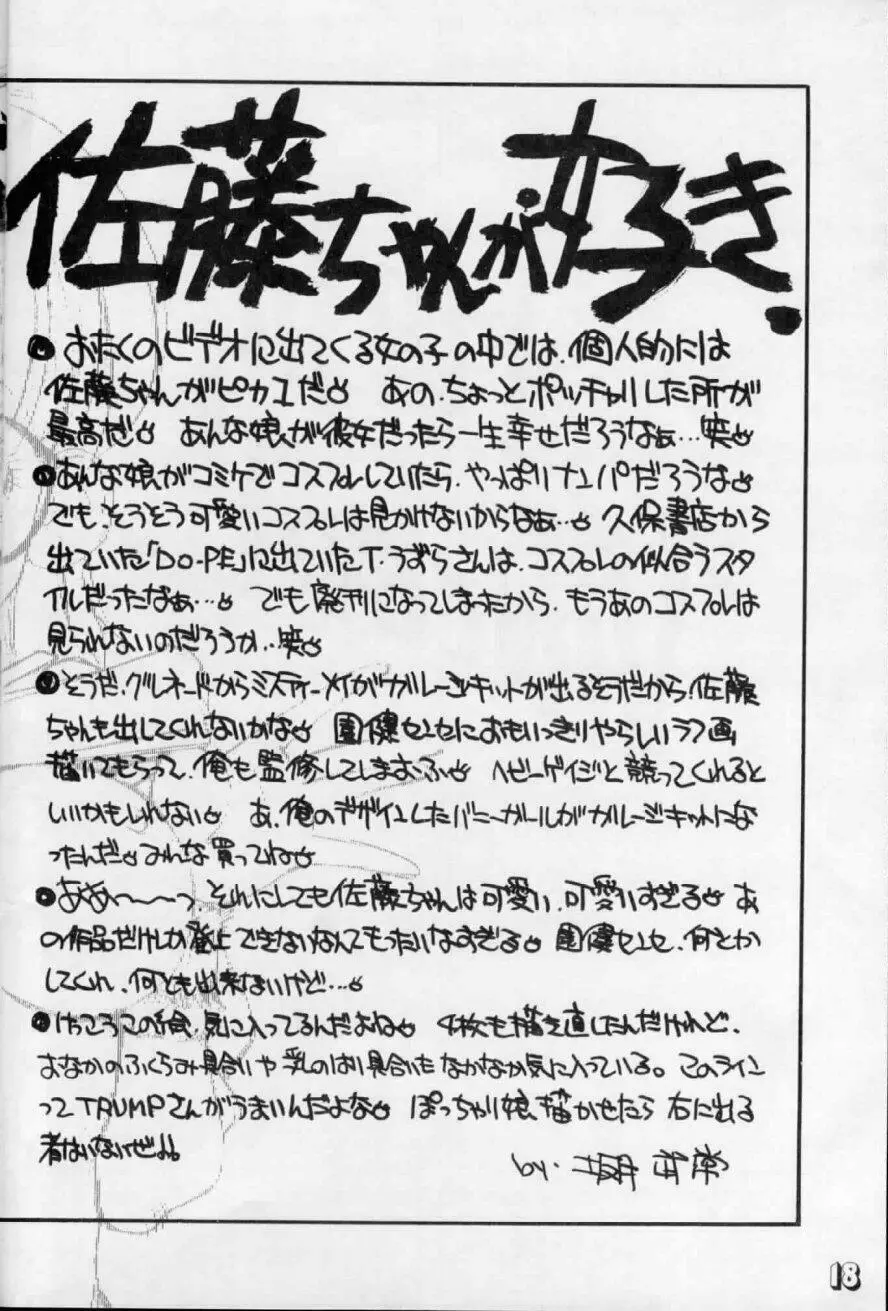 佐藤ちゃんが好き.
●おたくのビデオに出てくる女の子の中では、個人的には
佐藤ちゃんがピカ1だ♡ あの、ちょっとポッチャリした所が
最高だ♡ あんな娘が彼女だったら一生幸せだろうなぁ…笑♡
●あんな娘がコミケでコスプレしていたら、やっぱりナンパだろうな♡
でも、そうそう可愛いコスプレは見かけないからなぁ…♡ 久保書店から
出ていた「DO-PE」に出ていたT・うずらさんは、コスプレの似合うスタ
イルだったなぁ…♡ でも廃刊になってしまったから、もうあのコスプレは
見られないのだろうか…笑♡
●そうだ、グレネードからミスティーメイがガレージキットが出るそうだから、佐藤
ちゃんも出してくれないかな♡ 園健センセにおもいっきりやらしいラフ画
描いてもらって、俺も監修してしまおふ♡ ヘビーゲイジと競ってくれると
いいかもしれない♡ あ、俺のデザインしたバニーガールがガレージキットにな
ったんだ♡みんな買ってね♡
●ああ〜〜〜っ、それにしても佐藤ちゃんは可愛い、可愛いすぎる♡ あ
の作品だけしか登上できないなんてもったいなすぎる♡ 園健センセ、何とか
してくれ、何とも出来ないけど…♡
●けっこうこの絵、気に入ってるんだよね♡ 4枚も描き直したんだけれど、
おなかのふくらみ具合いや乳のはり具合いもなかなか気に入っている。このライン
ってTRUMPさんがうまいんだよな♡ ぽっちゃり娘、描かせたら右に出る
者はいないぜ!!
by.
18